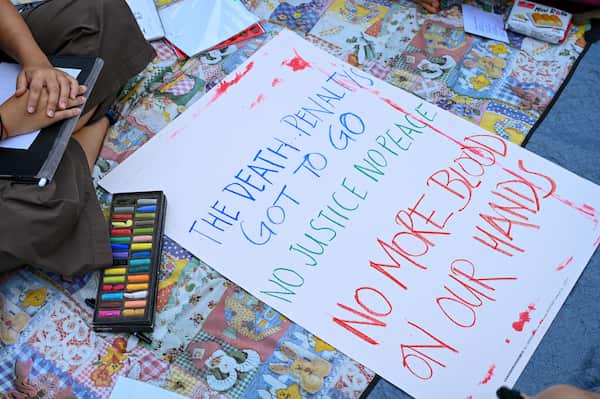 THE DEATH PENALTY'S
GOT TO GO
NO JUSTICE NO PEACE
NO MORE BLOOD
ON OUR HANDS